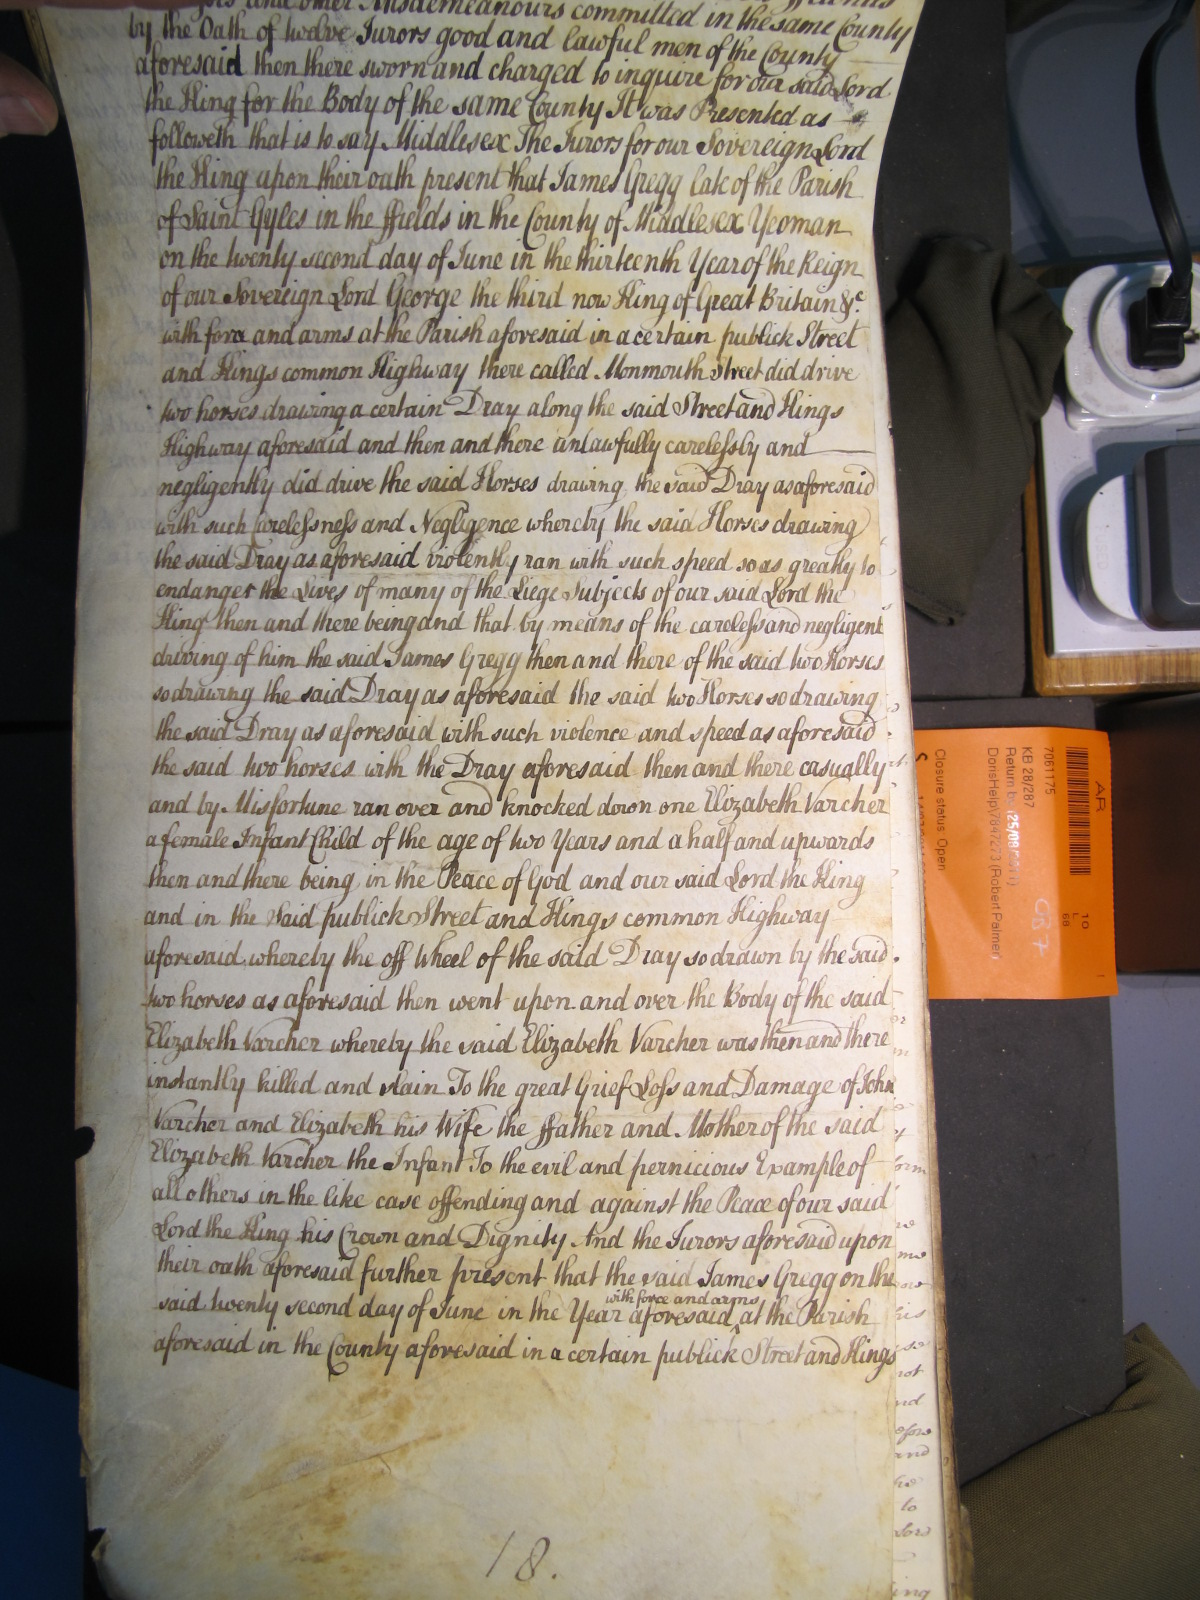 and other Misdemeanours committed in the same County
by the Oath of twelve Jurors good and lawful men of the County
aforesaid then there sworn and charged to inquire for our said Lord
the King for the Body of the same County It was Presented as
followeth that is to say Middlesex The Jurors for our Sovereign Lord
the King upon their oath present that James Gregg late of the Parish
of Saint Gyles in the ffields in the County of Middlesex Yeoman
on the twenty second day of June in the thirteenth Year of the Reign
of our Sovereign Lord George the third now King of Great Britain &c.
with force and arms at the Parish aforesaid in a certain publick Street
and Kings common Highway there called Monmouth Street did drive
two horses drawing a certain Dray along the said Street and Kings
Highway aforesaid and then and there unlawfully carelessly and
negligently did drive the said Horses drawing the said Dray as aforesaid
with such Carelessness and Negligence whereby the said Horses drawing
the said Dray as aforesaid violently ran with such speed so as greatly to
endanger the Lives of many of the Liege Subjects of our said Lord the
King then and there being and that by means of the careless and negligent
driving of him the said James Gregg then and there of the said two Horses
so drawing the said Dray as aforesaid the said two Horses so drawing
the said Dray as aforesaid with such violence and speed as aforesaid
the said two horses with the Dray aforesaid then and there casually
and by Misfortune ran over and knocked down one Elizabeth Varcher
a female Infant Child of the age of two Years and a half and upwards
then and there being in the Peace of God and our said Lord the King
and in the said publick Street and Kings common Highway
aforesaid whereby the off Wheel of the said Dray so drawn by the said
two horses as aforesaid then went upon and over the Body of the said
Elizabeth Varcher whereby the said Elizabeth Varcher was then and there
instantly killed and slain To the great Grief Loss and Damage of John
Varcher and Elizabeth his Wife the ffather and Mother of the said
Elizabeth Varcher the Infant To the evil and pernicious Example of
all others in the like case offending and against the Peace of our said
Lord the King his Crown and Dignity And the Jurors aforesaid upon
their oath aforesaid further present that the said James Gregg on the
with force and arms
said twenty second day of June in the Year aforesaid ^ at the Parish
aforesaid in the County aforesaid in a certain publick Street and Kings
18.
AR
7061175
KB 28/287
Return by 25/08/
DorisHelp\7847273 (Robert Palmer)
Closure status: Open
10
L
68